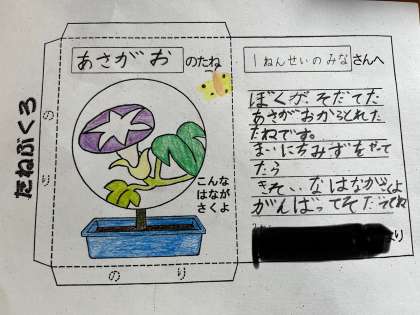 たねぶくろ
のり
あさがおのたね
こんな
はなが
さくよ
のり
1ねんせいのみなさんへ
ぼくが、そだてた
あさがおからとれた
たねです。
まいにちみずをやって
たら
きれいなはながさくよ
がんばってそだててね
より